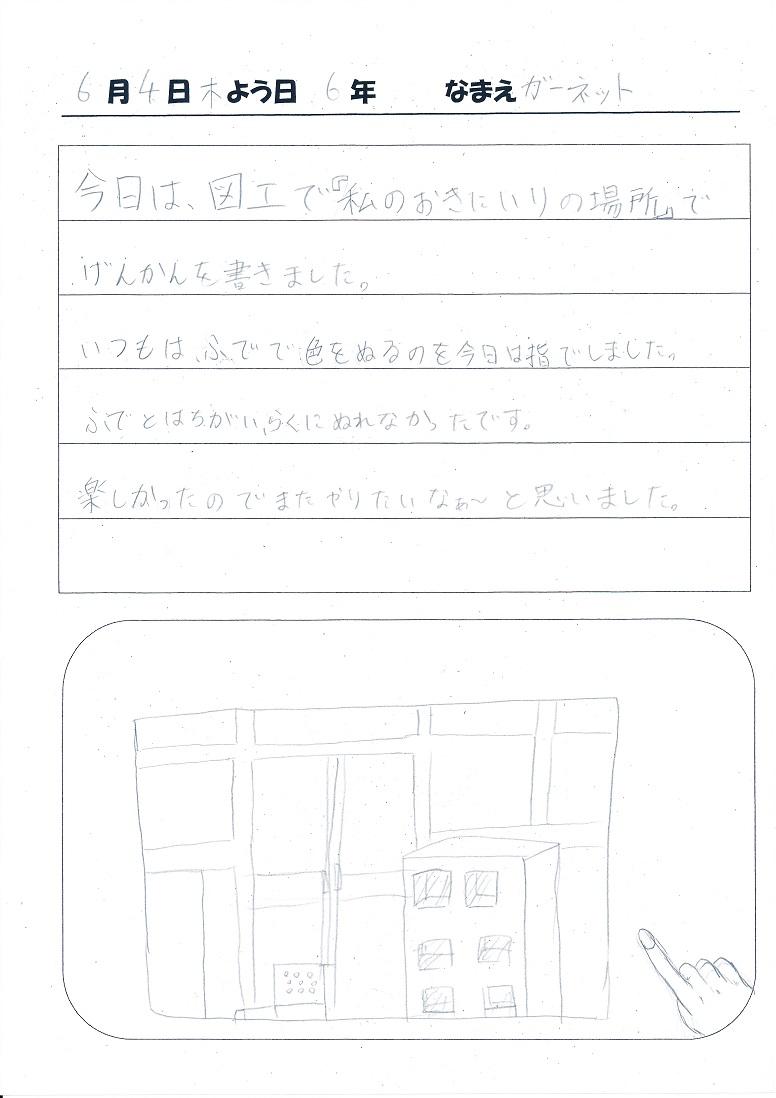 6月4日木よう日 6年 なまえガーネット
今日は、図工で『私のおきにいりの場所』で
げんかんを書きました。
いつもは、ふでで色をぬるのを今日は指でしました。
ふでとはちがい、らくにぬれなかったです。
楽しかったのでまたやりたいなぁ～と思いました。